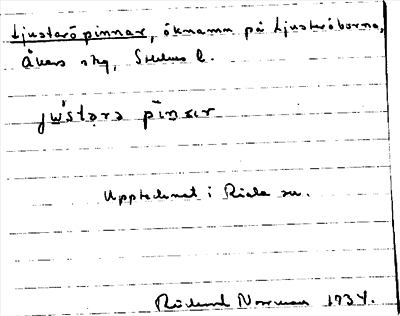 Ljusteröpinnar, öknamn på Ljusteröborna,
Åkers skg, Sthlms l.
jús̀tərə pìnər
Upptecknat i Riala sn.
Rickard Norrman 1934.